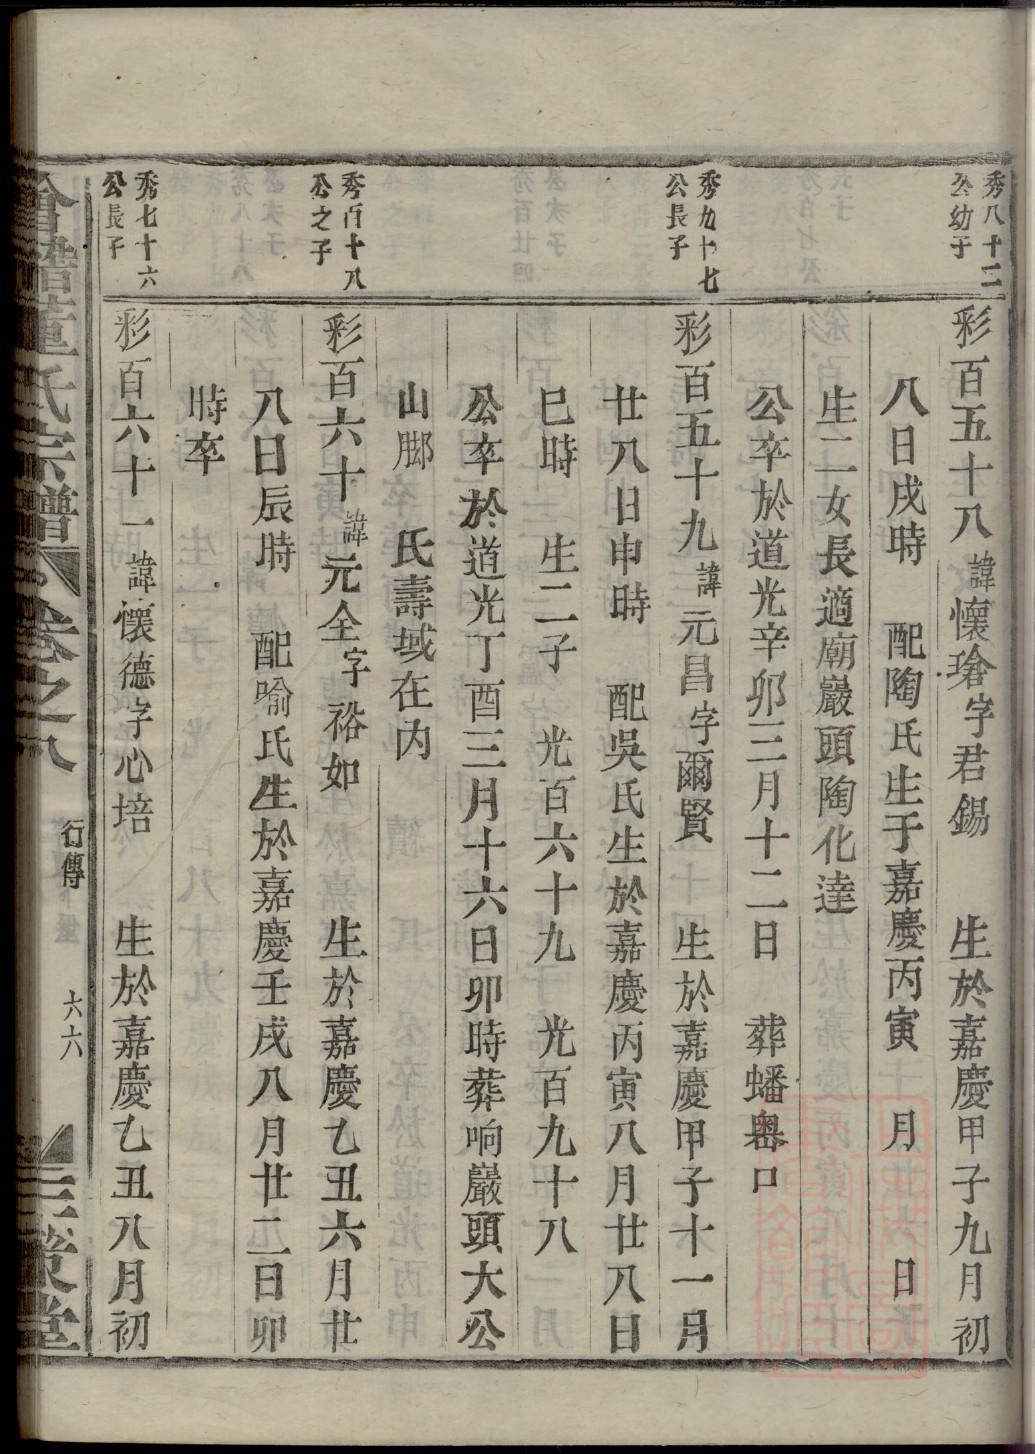 秀八十二
公幼子
彩百五十八諱懷瑲字君錫　生於嘉慶甲子九月初
八日戌時　配陶氏生于嘉慶丙寅　月　日
生二女長適廟巖頭陶化達
公卒於道光辛卯三月十二日　葬蟠嶴口
秀九十七
公長子
彩百五十九諱元昌字爾賢　生於嘉慶甲子十一月
廿八日申時　配吳氏生於嘉慶丙寅八月廿八日
巳時　生二子　光百六十九　光百九十八
公卒於道光丁酉三月十六日卯時葬响巖頭大公
山脚　氏壽域在内
秀百十八
公之子
彩百六十諱元全字裕如　生於嘉慶乙丑六月廿
八日辰時　配喻氏生於嘉慶壬戌八月廿二日卯
時卒
秀七十六
公長子
彩百六十一諱懷德字心培　生於嘉慶乙丑八月初
會稽董氏宗譜　卷之八　行傳　六六　三策堂